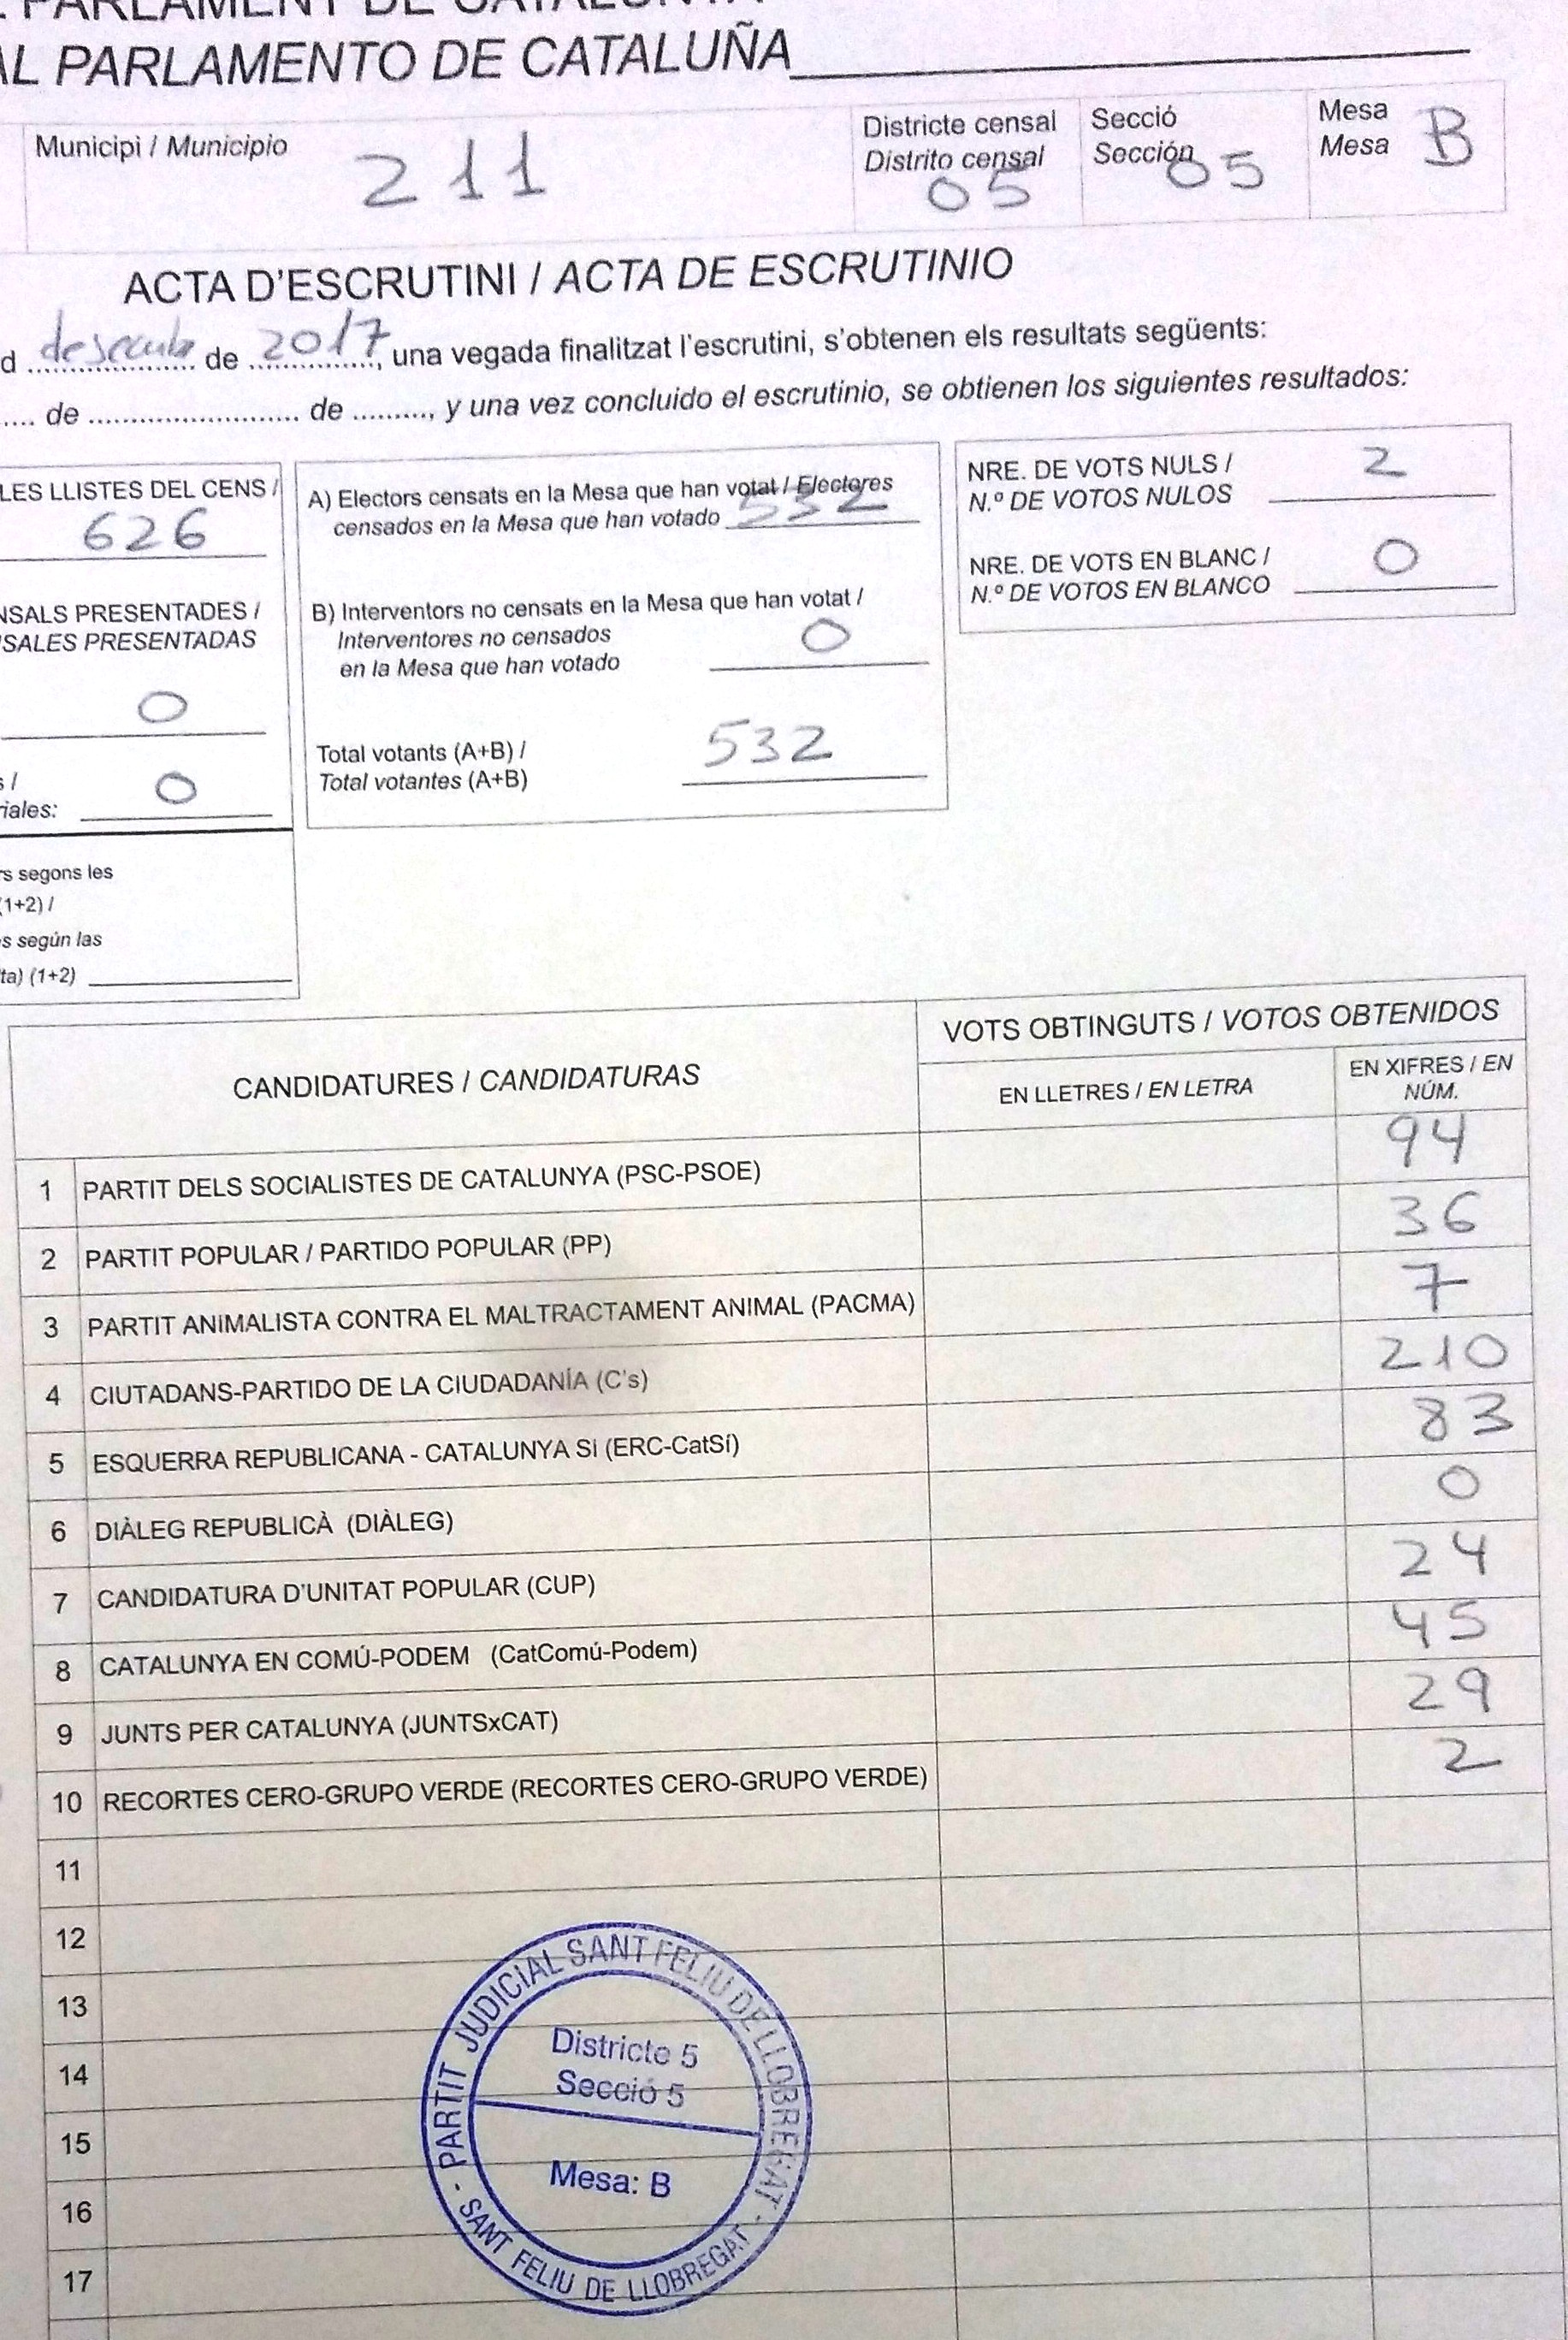 PARLAMENT DE CATALUNYA
AL PARLAMENTO DE CATALUÑA
Municipi / Municipio 211
Districte censal
Distrito censal
05
Secció
Sección
05
Mesa
Mesa
B
ACTA D'ESCRUTINI / ACTA DE ESCRUTINIO
d de 2017, una vegada finalitzat l'escrutini, s'obtenen els resultats següents:
.... de ............................ de ........., y una vez concluido el escrutinio, se obtienen los siguientes resultados:
LES LLISTES DEL CENS /
626
NSALS PRESENTADES /
SALES PRESENTADAS
0
s /
riales: 0
rs segons les
(1+2) /
s según las
ta) (1+2)
A) Electors censats en la Mesa que han votat / Electores
censados en la Mesa que han votado 532
B) Interventors no censats en la Mesa que han votat /
Interventores no censados
en la Mesa que han votado 0
Total votants (A+B) /
Total votantes (A+B) 532
NRE. DE VOTS NULS /
N.º DE VOTOS NULOS 2
NRE. DE VOTS EN BLANC /
N.º DE VOTOS EN BLANCO 0
CANDIDATURES / CANDIDATURAS
VOTS OBTINGUTS / VOTOS OBTENIDOS
EN LLETRES / EN LETRA
EN XIFRES / EN
NÚM.
1 PARTIT DELS SOCIALISTES DE CATALUNYA (PSC-PSOE) 94
2 PARTIT POPULAR / PARTIDO POPULAR (PP) 36
3 PARTIT ANIMALISTA CONTRA EL MALTRACTAMENT ANIMAL (PACMA) 7
4 CIUTADANS-PARTIDO DE LA CIUDADANÍA (C's) 210
5 ESQUERRA REPUBLICANA - CATALUNYA SÍ (ERC-CatSí) 83
6 DIÀLEG REPUBLICÀ (DIÀLEG) 0
7 CANDIDATURA D'UNITAT POPULAR (CUP) 24
8 CATALUNYA EN COMÚ-PODEM (CatComú-Podem) 45
9 JUNTS PER CATALUNYA (JUNTSxCAT) 29
10 RECORTES CERO-GRUPO VERDE (RECORTES CERO-GRUPO VERDE) 2
11
12
13
14
15
16
17
PARTIT JUDICIAL SANT FELIU DE LLOBREGAT -
Districte 5
Secció 5
Mesa: B
- SANT FELIU DE LLOBREGAT